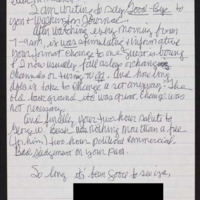 I am writing to say Good-Bye to
your Washington Journal.
After watching every morning from
7-9 am, it was stimulating & informative
your format change to one guest is boring
I now usually fall asleep or change
channels or turn to
. And how long
does it take to change a set anyway. The
old background was great, change was
not necessary.
And finally your two hour salute to
George W. Bush was nothing more than a free
two hour political commercial.
Bad judgement on your part.
So long its been good to see ya,